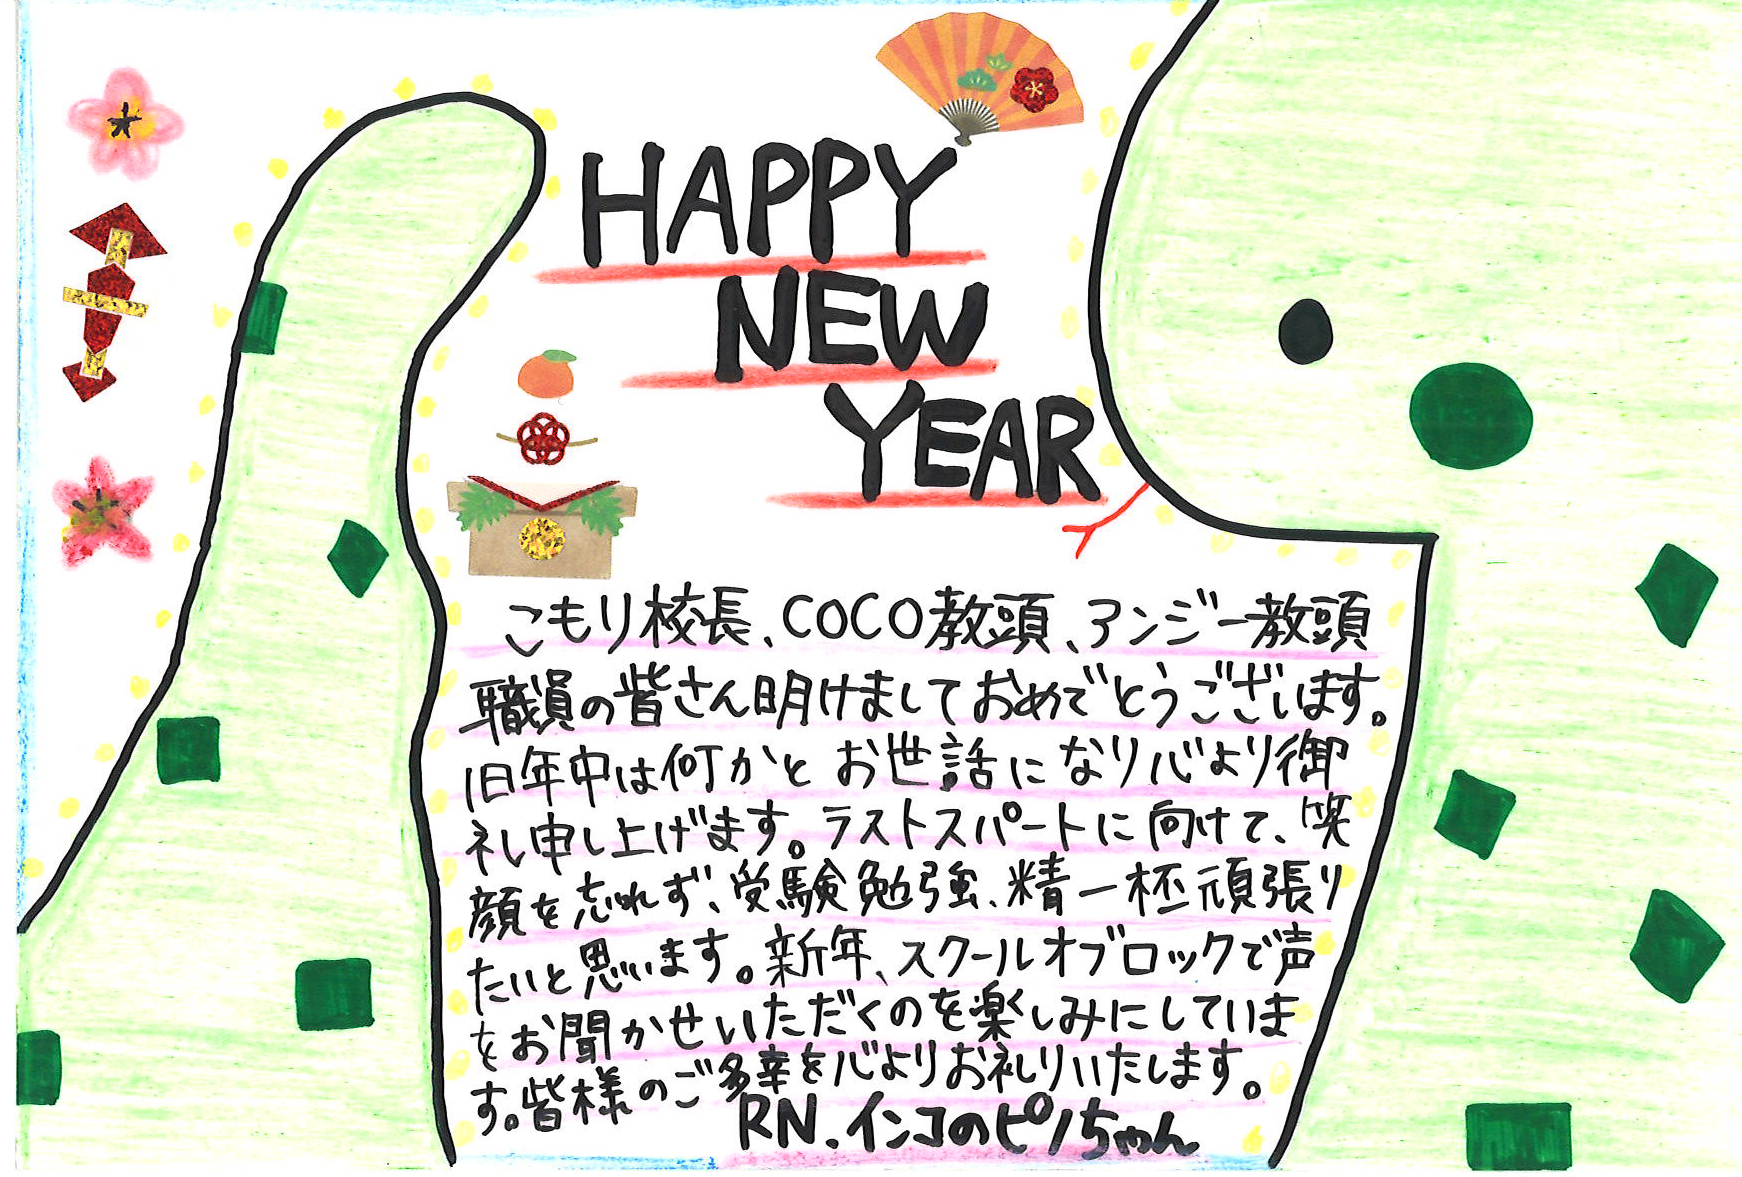 HAPPY
NEW
YEAR
こもり校長、COCO教頭、アンジー教頭
職員の皆さん明けましておめでとうございます。
旧年中は何かとお世話になり心より御
礼申し上げます。ラストスパートに向けて、笑
顔を忘れず、受験勉強、精一杯頑張り
たいと思います。新年、スクールオブロックで声
をお聞かせいただくのを楽しみにしていま
す。皆様のご多幸を心よりお礼りいたします。
RN.インコのピノちゃん